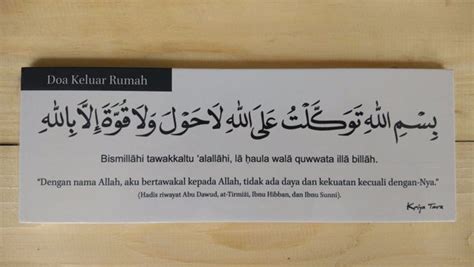 Doa Keluar Rumah
بِسْمِ اللهِ تَوَكَّلْتُ عَلَى اللهِ لَا حَوْلَ وَلَا قُوَّةَ إِلَّا بِاللهِ
Bismillāhi tawakkaltu ‘alallāhi, lā ḥaula walā quwwata illā billāh.
“Dengan nama Allah, aku bertawakal kepada Allah, tidak ada daya dan kekuatan kecuali dengan-Nya.”
(Hadis riwayat Abu Dawud, at-Tirmiżi, Ibnu Hibban, dan Ibnu Sunni).